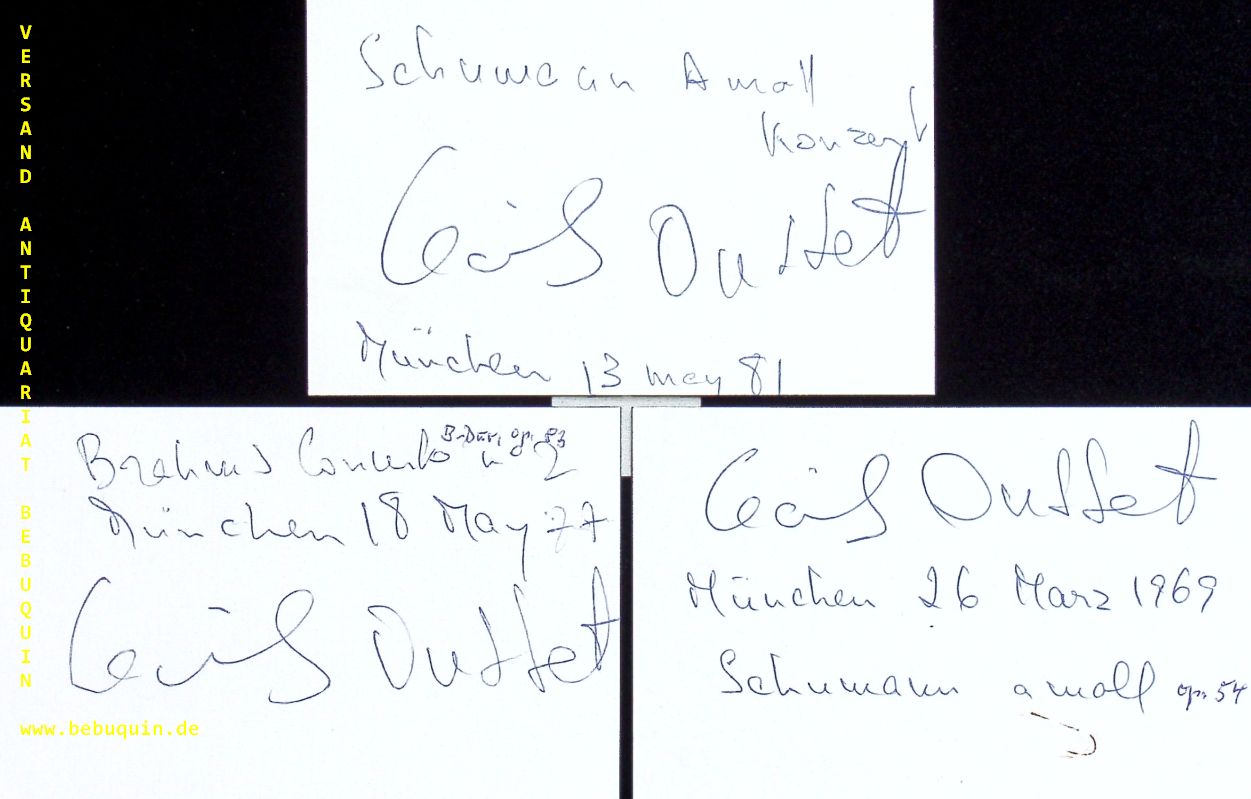 VERSAND ANTIQUARIAT BEBUQUIN
Schumann Amoll
Konzert
Cécile Ousset
München 13 may 81
Brahms Concerto n 2
B-Dur, op. 83
München 18 May 77
Cécile Ousset
Cécile Ousset
München 26 Marz 1969
Schumann a moll op. 54
www.bebuquin.de